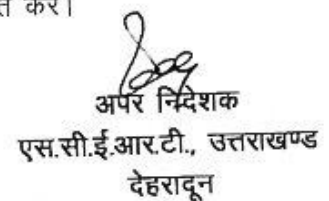 करें।
अपर निदेशक
एस.सी.ई.आर.टी., उत्तराखण्ड
देहरादून